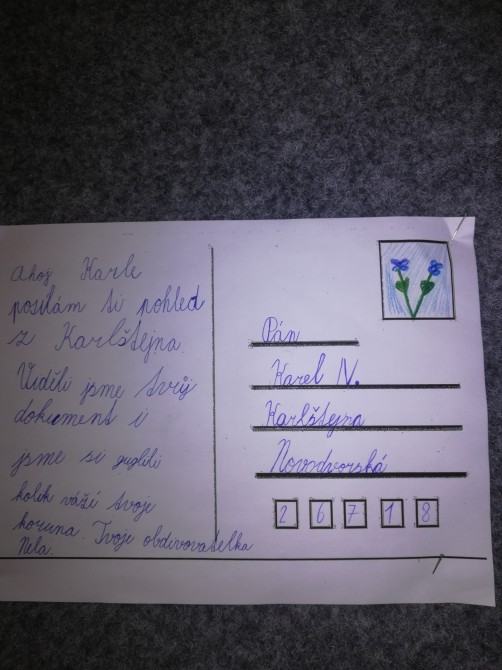 Ahoj Karle
posílám ti pohled
z Karlštejna.
Viděli jsme tvůj
dokument i
jsme si guglili
kolik váží tvoje
koruna. Tvoje obdivovatelka
Nela.
Pán
Karel IV.
Karlštejna
Novodvorská
2 6 7 1 8